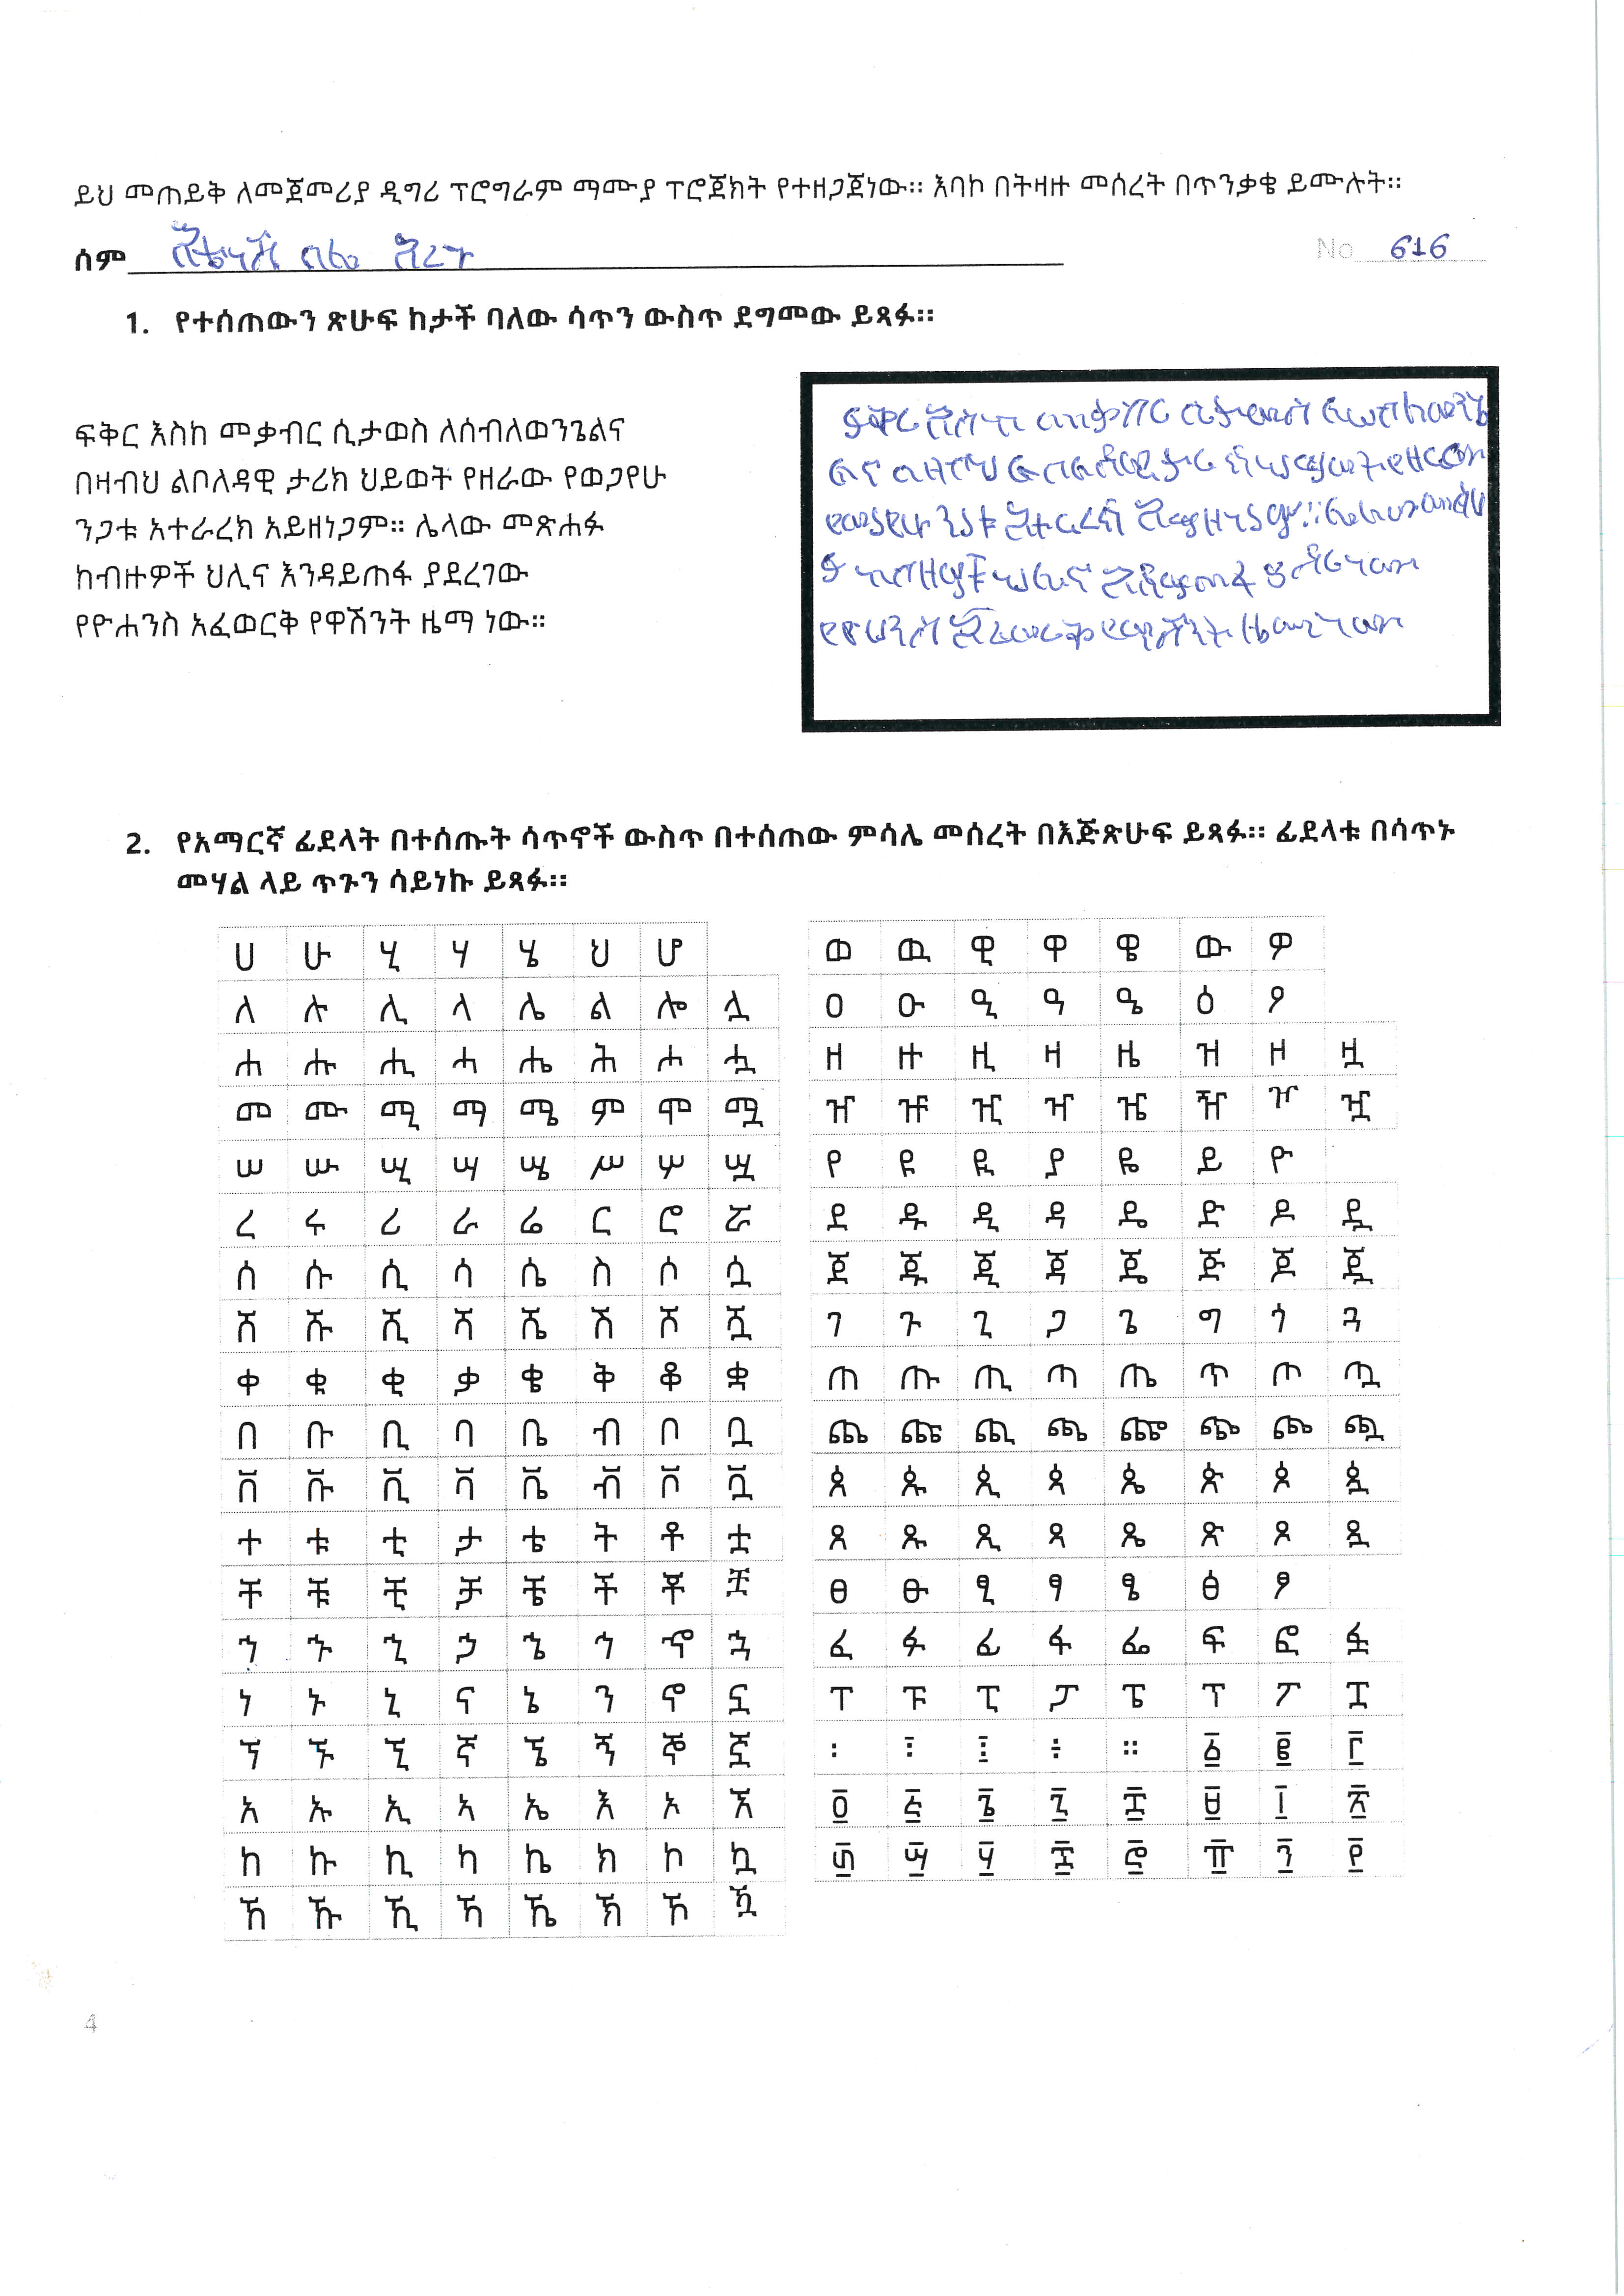 ይህ መጠይቅ ለመጀመሪያ ዲግሪ ፕሮግራም ማሙያ ፕሮጀክት የተዘጋጀነው። እባኮ በትዛዙ መሰረት በጥንቃቄ ይሙሉት።
ሰም
No 616
1. የተሰጠውን ጽሁፍ ከታች ባለው ሳጥን ውስጥ ደግመው ይጻፉ።
ፍቅር እስከ መቃብር ሲታወስ ለሰብለወንጌልና
በዛብህ ልቦለዳዊ ታሪክ ህይወት የዘራው የወጋየሁ
ንጋቱ አተራረክ አይዘነጋም። ሌላው መጽሐፉ
ከብዙዎች ህሊና እንዳይጠፋ ያደረገው
የዮሐንስ አፈወርቅ የዋሽንት ዜማ ነው።
2. የአማርኛ ፊደላት በተሰጡት ሳጥኖች ውስጥ በተሰጠው ምሳሌ መሰረት በእጅጽሁፍ ይጻፉ። ፊደላቱ በሳጥኑ
መሃል ላይ ጥጉን ሳይነኩ ይጻፉ።
ሀ ሁ ሂ ሃ ሄ ህ ሆ
ለ ሉ ሊ ላ ሌ ል ሎ ሏ
ሐ ሑ ሒ ሓ ሔ ሕ ሖ ሗ
መ ሙ ሚ ማ ሜ ም ሞ ሟ
ሠ ሡ ሢ ሣ ሤ ሥ ሦ ሧ
ረ ሩ ሪ ራ ሬ ር ሮ ሯ
ሰ ሱ ሲ ሳ ሴ ስ ሶ ሷ
ሸ ሹ ሺ ሻ ሼ ሽ ሾ ሿ
ቀ ቁ ቂ ቃ ቄ ቅ ቆ ቋ
በ ቡ ቢ ባ ቤ ብ ቦ ቧ
ቨ ቩ ቪ ቫ ቬ ቭ ቮ ቯ
ተ ቱ ቲ ታ ቴ ት ቶ ቷ
ቸ ቹ ቺ ቻ ቼ ች ቾ ቿ
ኀ ኁ ኂ ኃ ኄ ኅ ኆ ኋ
ነ ኑ ኒ ና ኔ ን ኖ ኗ
ኘ ኙ ኚ ኛ ኜ ኝ ኞ ኟ
አ ኡ ኢ ኣ ኤ እ ኦ ኧ
ከ ኩ ኪ ካ ኬ ክ ኮ ኳ
ኸ ኹ ኺ ኻ ኼ ኽ ኾ ዃ
ወ ዉ ዊ ዋ ዌ ው ዎ
ዐ ዑ ዒ ዓ ዔ ዕ ዖ
ዘ ዙ ዚ ዛ ዜ ዝ ዞ ዟ
ዠ ዡ ዢ ዣ ዤ ዥ ዦ ዧ
የ ዩ ዪ ያ ዬ ይ ዮ
ደ ዱ ዲ ዳ ዴ ድ ዶ ዷ
ጀ ጁ ጂ ጃ ጄ ጅ ጆ ጇ
ገ ጉ ጊ ጋ ጌ ግ ጎ ጓ
ጠ ጡ ጢ ጣ ጤ ጥ ጦ ጧ
ጨ ጩ ጪ ጫ ጬ ጭ ጮ ጯ
ጰ ጱ ጲ ጳ ጴ ጵ ጶ ጷ
ጸ ጹ ጺ ጻ ጼ ጽ ጾ ጿ
ፀ ፁ ፂ ፃ ፄ ፅ ፆ
ፈ ፉ ፊ ፋ ፌ ፍ ፎ ፏ
ፐ ፑ ፒ ፓ ፔ ፕ ፖ ፗ
፡ ፣ ፤ ÷ ። ፩ ፪ ፫
፬ ፭ ፮ ፯ ፰ ፱ ፲ ፳
፴ ፵ ፶ ፷ ፸ ፹ ፺ ፻
4